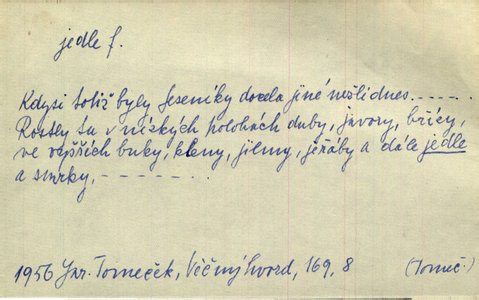 jedle f.
Kdysi totiž byly Jeseníky docela jiné nežli dnes. - - - - -
Rostly tu v nízkých polohách duby, javory, břízy,
ve vyšších buky, kleny, jilmy, jeřáby a dále jedle
a smrky, - - - - - - - .
1956 Jar. Tomeček, Věčný hvozd, 169, 8 (Tomeč.)